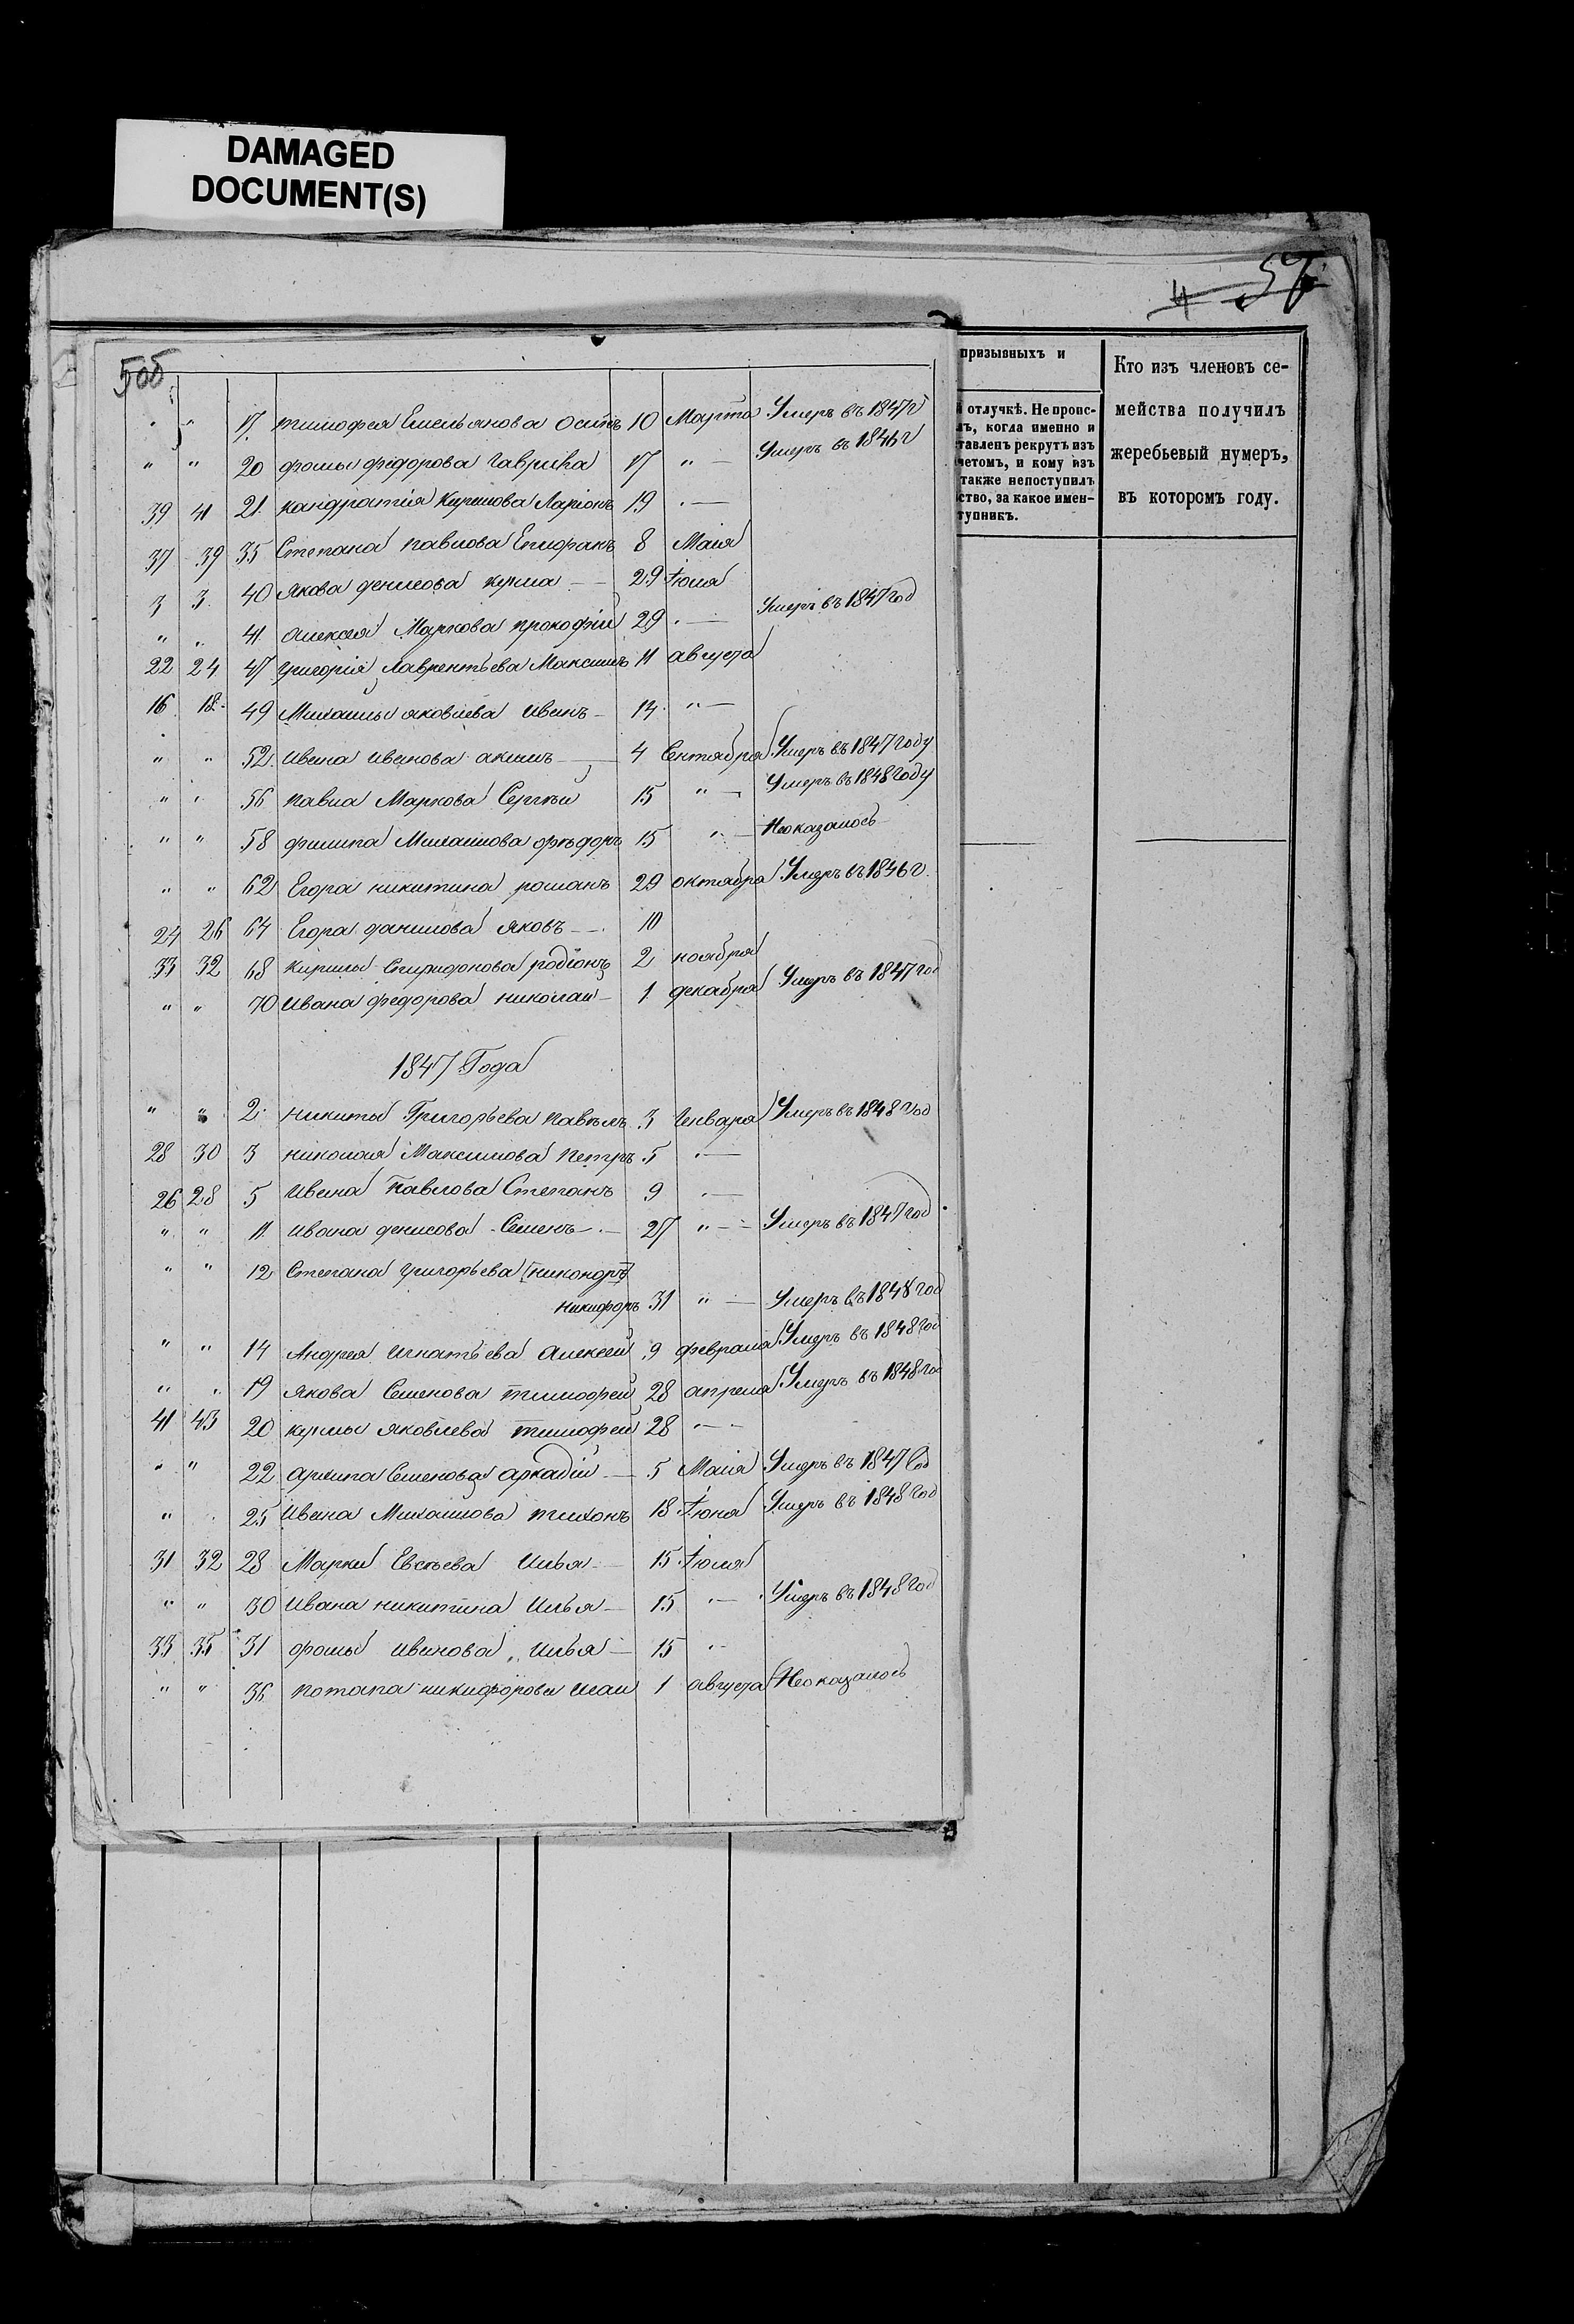 DAMAGED
DOCUMENT(S)
57
4
506
призывныхъ и
отлучкѣ. Не пропс-
лъ, когда именно и
ставленъ рекрутъ изъ
четомъ, и кому изъ
также непоступилъ
ство, за какое имен-
тупникъ.
Кто изъ членовъ се-
мейства получилъ
жеребьевый нумеръ,
въ которомъ году.
" " 17 тимофея Емельянова Осипъ 10 Марта Умеръ въ 1847 г
" " 20 фомы федорова Гаврила 17 " — Умеръ въ 1846 г
39 41 21 кандратия Кирилова Ларіонъ 19 " —
37 39 35 Степана павлова Епифанъ 8 Маія
3 3 40 Якова денисова кузма — 29 Іюля
" " 41 алексея Маркова прокофій 29 " — Умеръ въ 1847 год
22 24 47 григорія Лаврентьева Максимъ 11 августа
16 18 49 Михаилы яковлева Иванъ — 14 " —
" " 52 Ивана Иванова акимъ — 4 Сентября Умеръ въ 1847 году
" " 56 павла Маркова Сергѣй 15 " — Умеръ въ 1848 году
" " 58 филипа Михаилова фѣдоръ 15 " — Неоказалось
" " 62 Егора никитина романъ 29 октября Умеръ въ 1846 г.
24 26 64 Егора данилова яковъ — 10
33 32 68 кирилы Спиридонова родіонъ 2 ноября
" " 70 Ивана федорова николай — 1 декабря Умеръ въ 1847 год
1847 Года
" " 2 никиты Григорьева павелъ 3 Генваря Умеръ въ 1848 год
28 30 3 николая Максимова петръ 5 " —
26 28 5 Ивана Павлова Степанъ 9 " —
" " 11 Ивана денисова Семенъ — 27 " — Умеръ въ 1847 год
" " 12 Степана григорьева [никандръ]
никифоръ 31 " — Умеръ въ 1848 год
" " 14 Андрея игнатьева алексей 9 февраля Умеръ въ 1848 год
" " 19 якова Семенова тимофей 28 апреля Умеръ въ 1848 год
41 43 20 кузмы яковлева тимофей 28 " —
" " 22 архипа Семенова аркадій — 5 Маія Умеръ въ 1847 год
" " 25 Ивана Михаилова тихонъ 18 Іюня Умеръ въ 1848 год
31 32 28 Марки Евсѣева Илья — 15 Іюля
" " 30 Ивана никитина Илья — 15 " — Умеръ въ 1848 год
33 35 31 фомы иванова Илья — 15 "
" " 36 потапа никифорова 1 августа Неоказалось